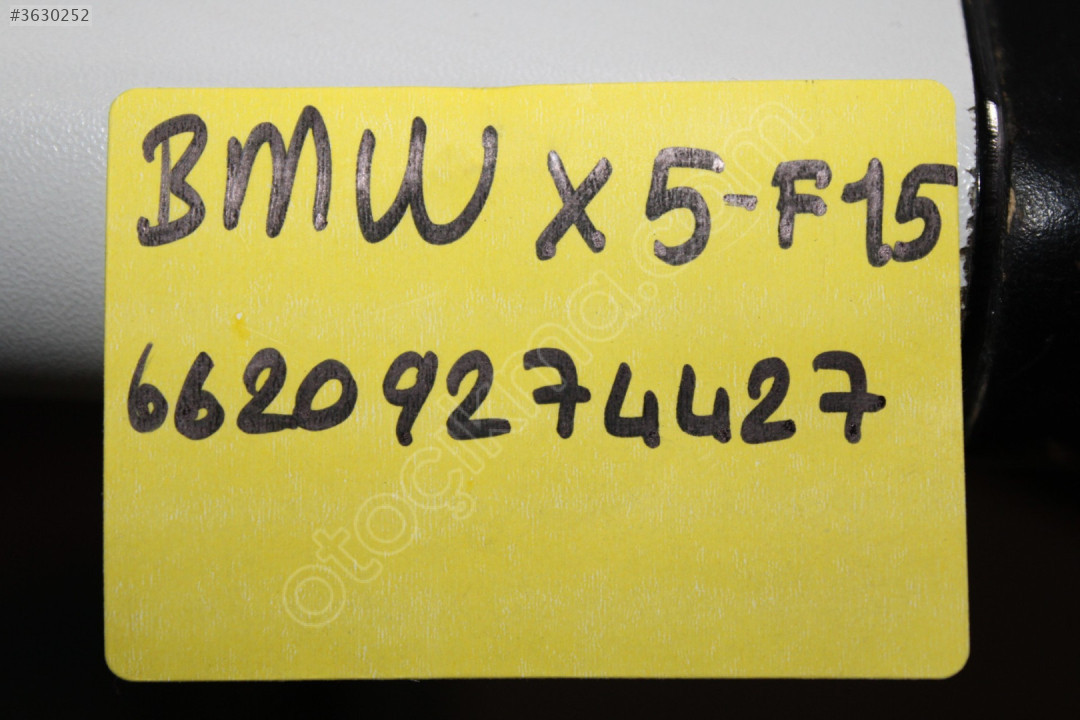 #3630252
BMW X5-F15
66209274427
otoçıkma.com